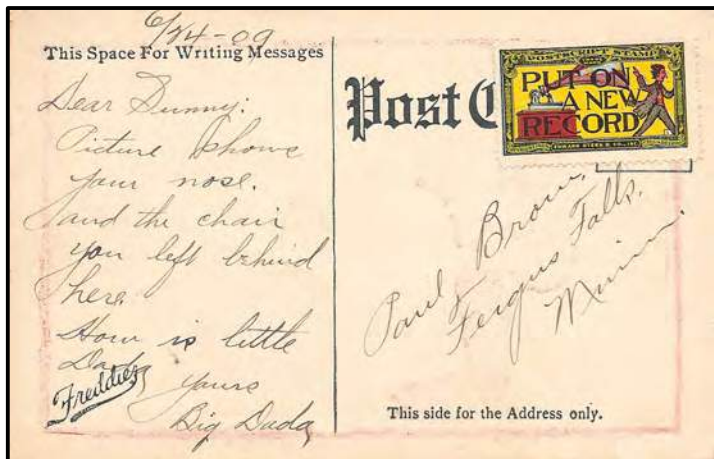 6/24-09
This Space For Writing Messages
Dear Sunny:
Picture shows
your nose.
and the chair
you left behind
here.
How is little
Dada
yours
Big Dada
Freddie
Post C
POSTSCRIPT STAMP
PUT ON
A NEW
RECORD
Paul Brown,
Fergus Falls,
Minn.
This side for the Address only.